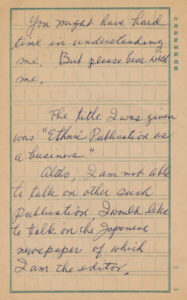 You might have hard
time in understanding
me. But please bear with
me.
The title I was given
was "Ethnic Publication as
a business"
Altho, I am not able
to talk on other such
publication, I would like
to talk on the Japanese
newspaper of which
I am the editor.